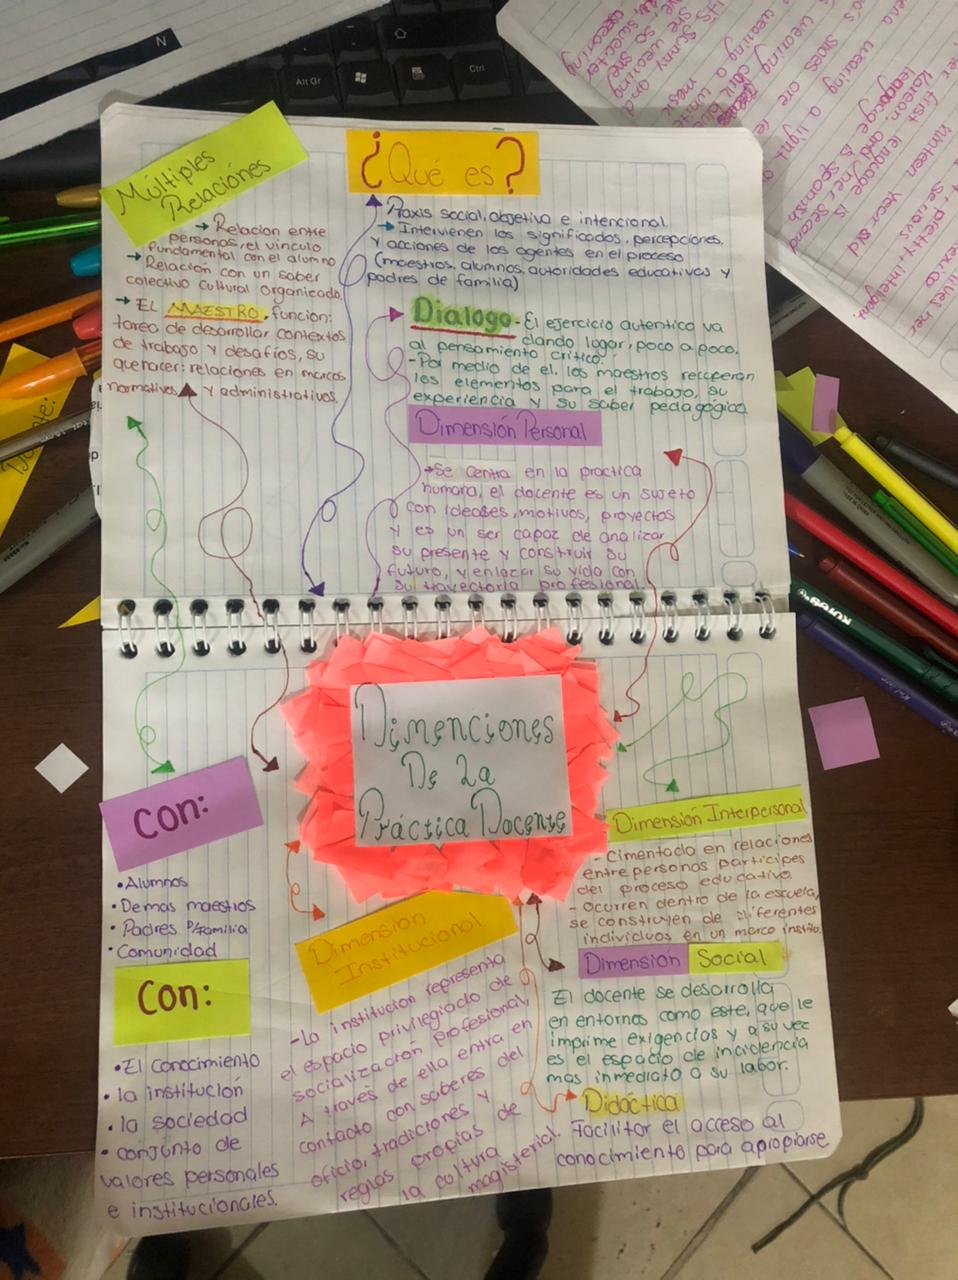 Múltiples
Relaciónes
→ Relacion entre
personas, el vinculo
fundamental con el alumno
→ Relación con un saber
colectivo cultural organizado.
→ EL MAESTRO, funcion:
tarea de desarrollar contextos
de trabajo y desafíos, su
quehacer: relaciones en marcos
normativos y administrativos.
¿Qué es?
Praxis social, objetiva e intencional.
→ Intervienen los significados, percepciones,
y acciones de los agentes en el proceso
(maestros, alumnos, autoridades educativas y
padres de familia)
Dialogo - El ejercicio autentico va
dando lugar, poco a poco,
al pensamiento critico.
- Por medio de el, los maestros recuperan
los elementos para el trabajo, su
experiencia y su saber pedagógico
Dimensión Personal
→ Se centra en la practica
humana, el docente es un sujeto
con ideases, motivos, proyectos
y es un ser capaz de analizar
su presente y construir su
futuro, y enlazar su vida con
su trayectoria profesional.
Dimenciones
De La
Práctica Docente
Con:
• Alumnos
• Demas maestros
• Padres D/familia
• Comunidad
Con:
• El Conocimiento
• la institución
• la sociedad
• conjunto de
valores personales
e institucionales.
Dimension
Institucional
- La institucion representa
el espacio privilegiado de
socialización profesional,
A traves de ella entra en
contacto con saberes del
oficio, tradiciones y
reglas propias de
la cultura
magisterial.
Dimensión Interpersonal
- Cimentado en relaciones
entre personas participes
del proceso educativo
- Ocurren dentro de la escuela,
se construyen de diferentes
individuos en un marco instit.
Dimensión Social
El docente se desarrolla
en entornos como este, que le
imprime exigencias y a su vez
es el espacio de incidencia
mas inmediato a su labor.
Didáctica
Facilitar el acceso al
conocimiento para apropiarse
N
Alt Gr
Ctrl